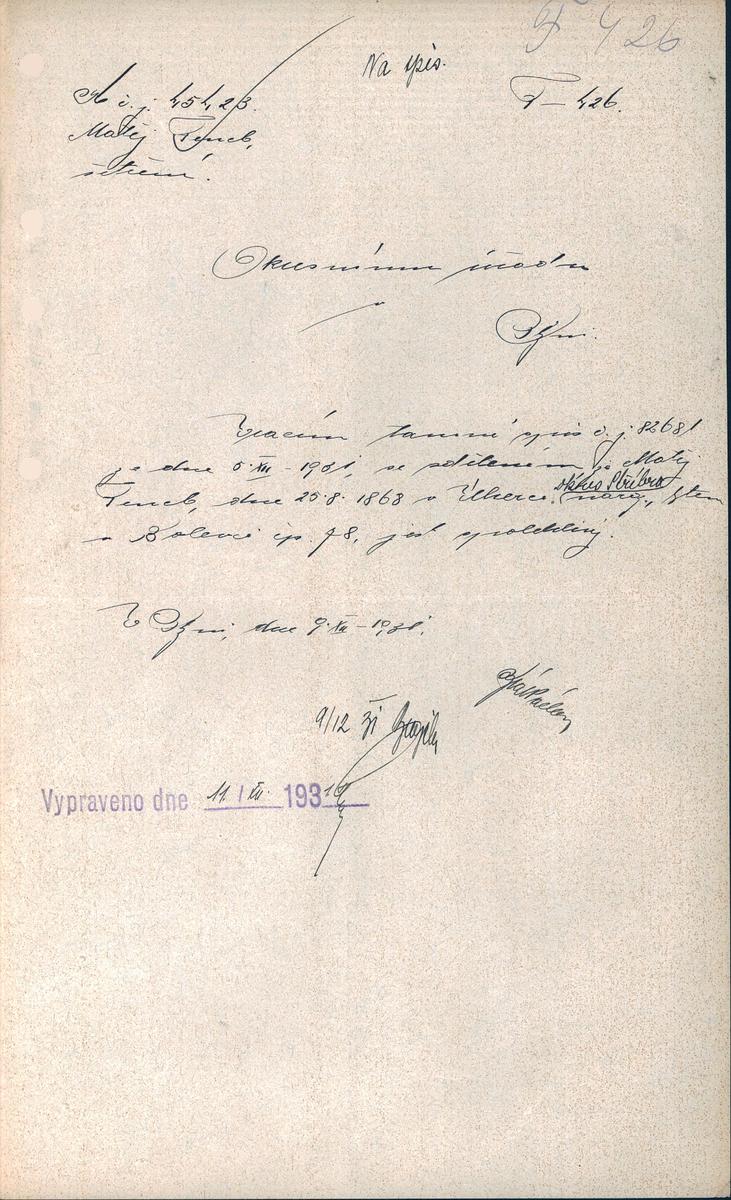 F 426
Na spis.
A č. j. 45423.
F – 426.
Matěj Fencl,
šetření.
Okresnímu úřadu
v
Plzni.
Vracím tamní spis č. j. 82681
ze dne 5. XII – 1931, se sdělením že Matěj
okres Stříbro
Fencl, dne 25.8. 1868 v Úherci, naroz., bytem
v Bolevci čp. 78, jest spolehlivý.
V Plzni, dne 9. XII – 1931.
9/12 31
Vypraveno dne 11/XII. 1931